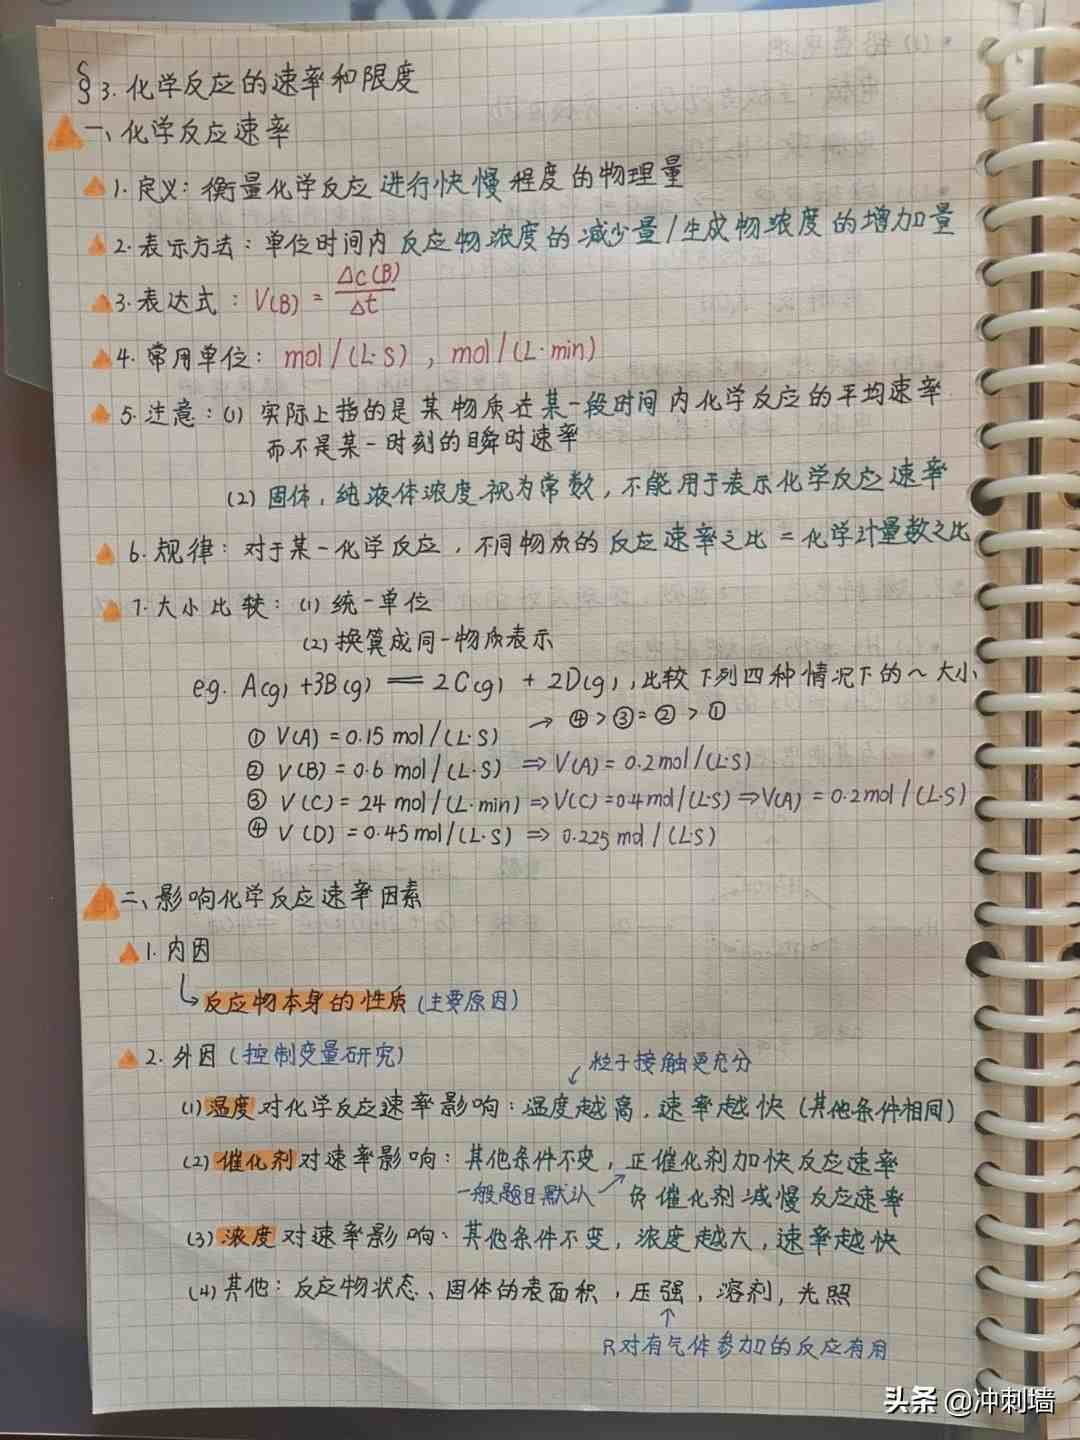 §3. 化学反应的速率和限度
一、化学反应速率
1. 定义：衡量化学反应进行快慢程度的物理量
2. 表示方法：单位时间内反应物浓度的减少量/生成物浓度的增加量
3. 表达式：V(B) = Δc(B)/Δt
4. 常用单位：mol/(L·S)，mol/(L·min)
5. 注意：(1) 实际上指的是某物质在某一段时间内化学反应的平均速率
而不是某一时刻的瞬时速率
(2) 固体，纯液体浓度视为常数，不能用于表示化学反应速率
6. 规律：对于某一化学反应，不同物质的反应速率之比 = 化学计量数之比
7. 大小比较：(1) 统一单位
(2) 换算成同一物质表示
e.g. A(g) + 3B(g) == 2C(g) + 2D(g)，比较下列四种情况下的～大小
→ ④>③=②>①
① V(A) = 0.15 mol/(L·S)
② V(B) = 0.6 mol/(L·S) ⇒ V(A) = 0.2mol/(L·S)
③ V(C) = 24 mol/(L·min) ⇒ V(C) = 0.4mol/(L·S) ⇒ V(A) = 0.2mol/(L·S)
④ V(D) = 0.45mol/(L·S) ⇒ 0.225 mol/(L·S)
二、影响化学反应速率因素
1. 内因
↳ 反应物本身的性质 (主要原因)
2. 外因 (控制变量研究)
粒子接触更充分
(1) 温度对化学反应速率影响：温度越高，速率越快 (其他条件相同)
(2) 催化剂对速率影响：其他条件不变，正催化剂加快反应速率
一般题目默认 负催化剂减慢反应速率
(3) 浓度对速率影响：其他条件不变，浓度越大，速率越快
(4) 其他：反应物状态、固体的表面积，压强，溶剂，光照
只对有气体参加的反应有用
头条 @冲刺墙